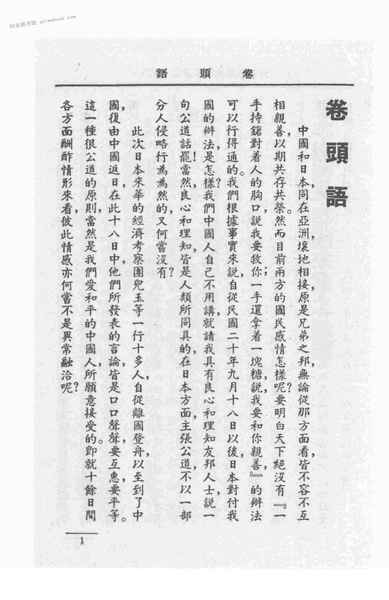 卷頭語
卷頭語
中國和日本，同在亞洲，壤地相接，原是兄弟之邦，無論從那方面看，皆不容不互
相親善，以期共存共榮。然而目前兩方的國民感情怎樣呢？要明白天下絕沒有『一
手持鎗對着人的胸口說我要救你；一手還拿着一塊糖，說我要和你親善』的辦法
可以行得通的。我們根據事實來說，自從民國二十年九月十八日以後，日本對付我
國的辦法是怎樣？我們中國人自己不用講，就請我具有良心和理知友邦人士，說一
句公道話罷！當然，良心和理知，皆是人類所同具的，在日本方面，主張公道，不以一部
分人侵略行為為然的，又何嘗沒有？
此次日本來華的經濟考察團兒玉等一行十多人，自從離國登舟，以至到了中
國，復由中國返日，在此十八日中，他們所發表的言論，皆是口口聲聲，要互惠，要平等。
這一種很公道的原則，當然是我們愛和平的中國人，所願意接受的。即就十餘日間
各方面酬酢情形來看，彼此情感，亦何嘗不是異常融洽呢？
1